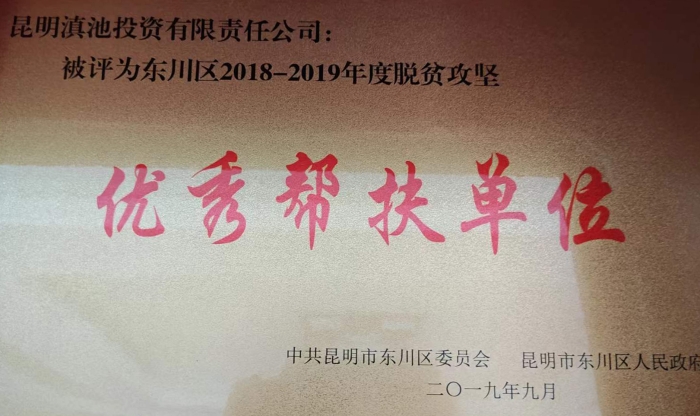 昆明滇池投资有限责任公司：
被评为东川区2018-2019年度脱贫攻坚
优秀帮扶单位
中共昆明市东川区委员会 昆明市东川区人民政府
二〇一九年九月